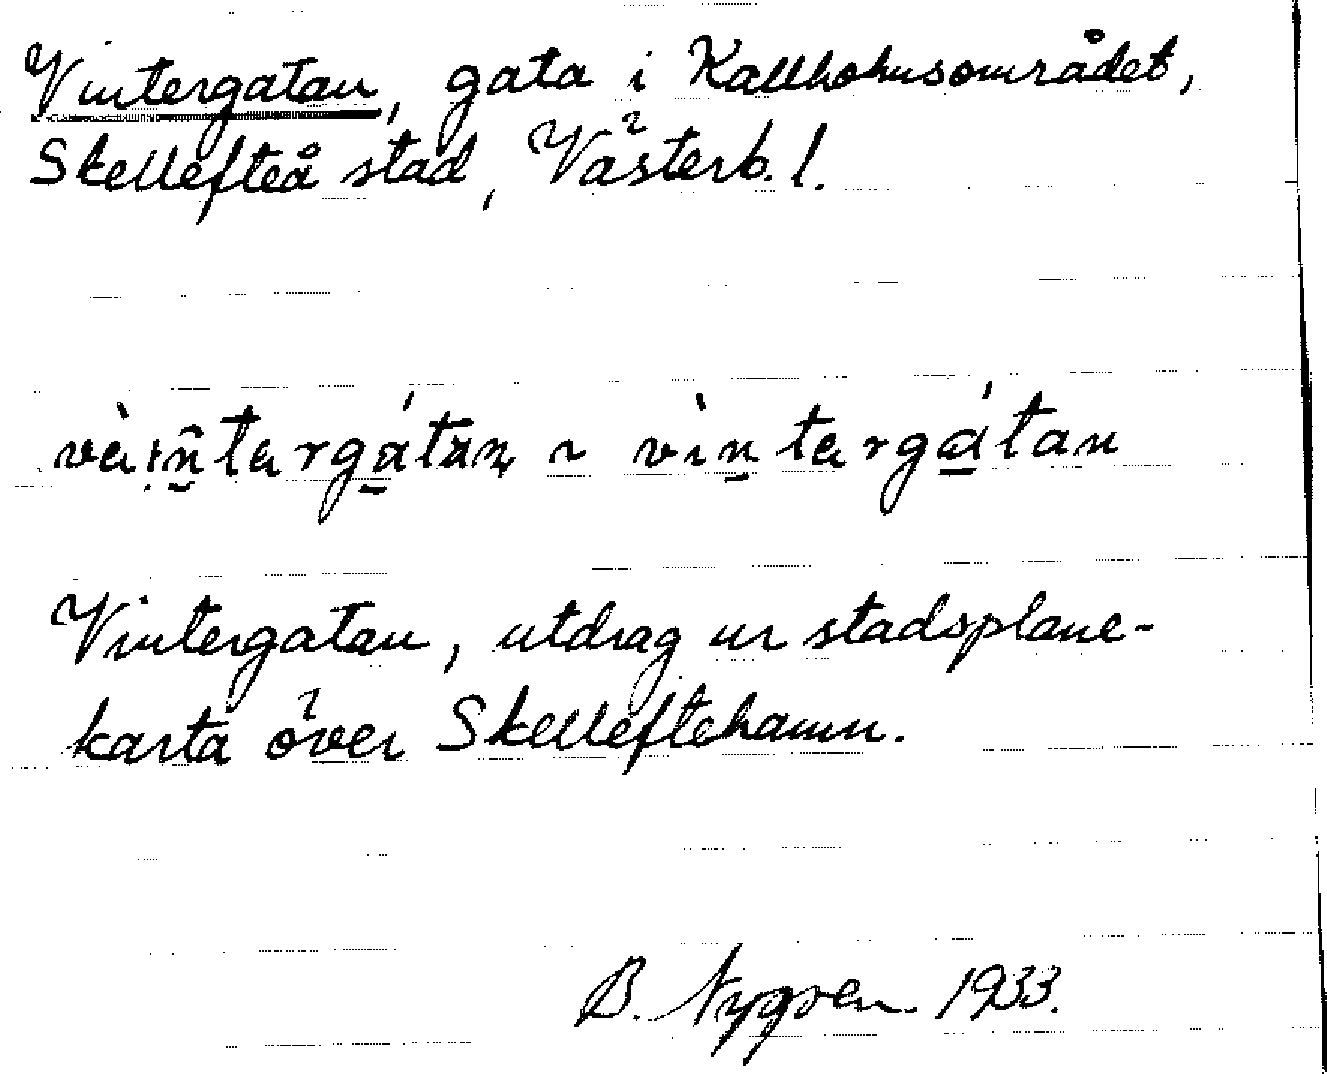 Vintergatan, gata i Kallholmsområdet,
Skellefteå stad, Västerb. l.
vìntargátan
Vintergatan, utdrag ur stadsplane-
karta över Skelleftehamn.
B. Nygren 1933.